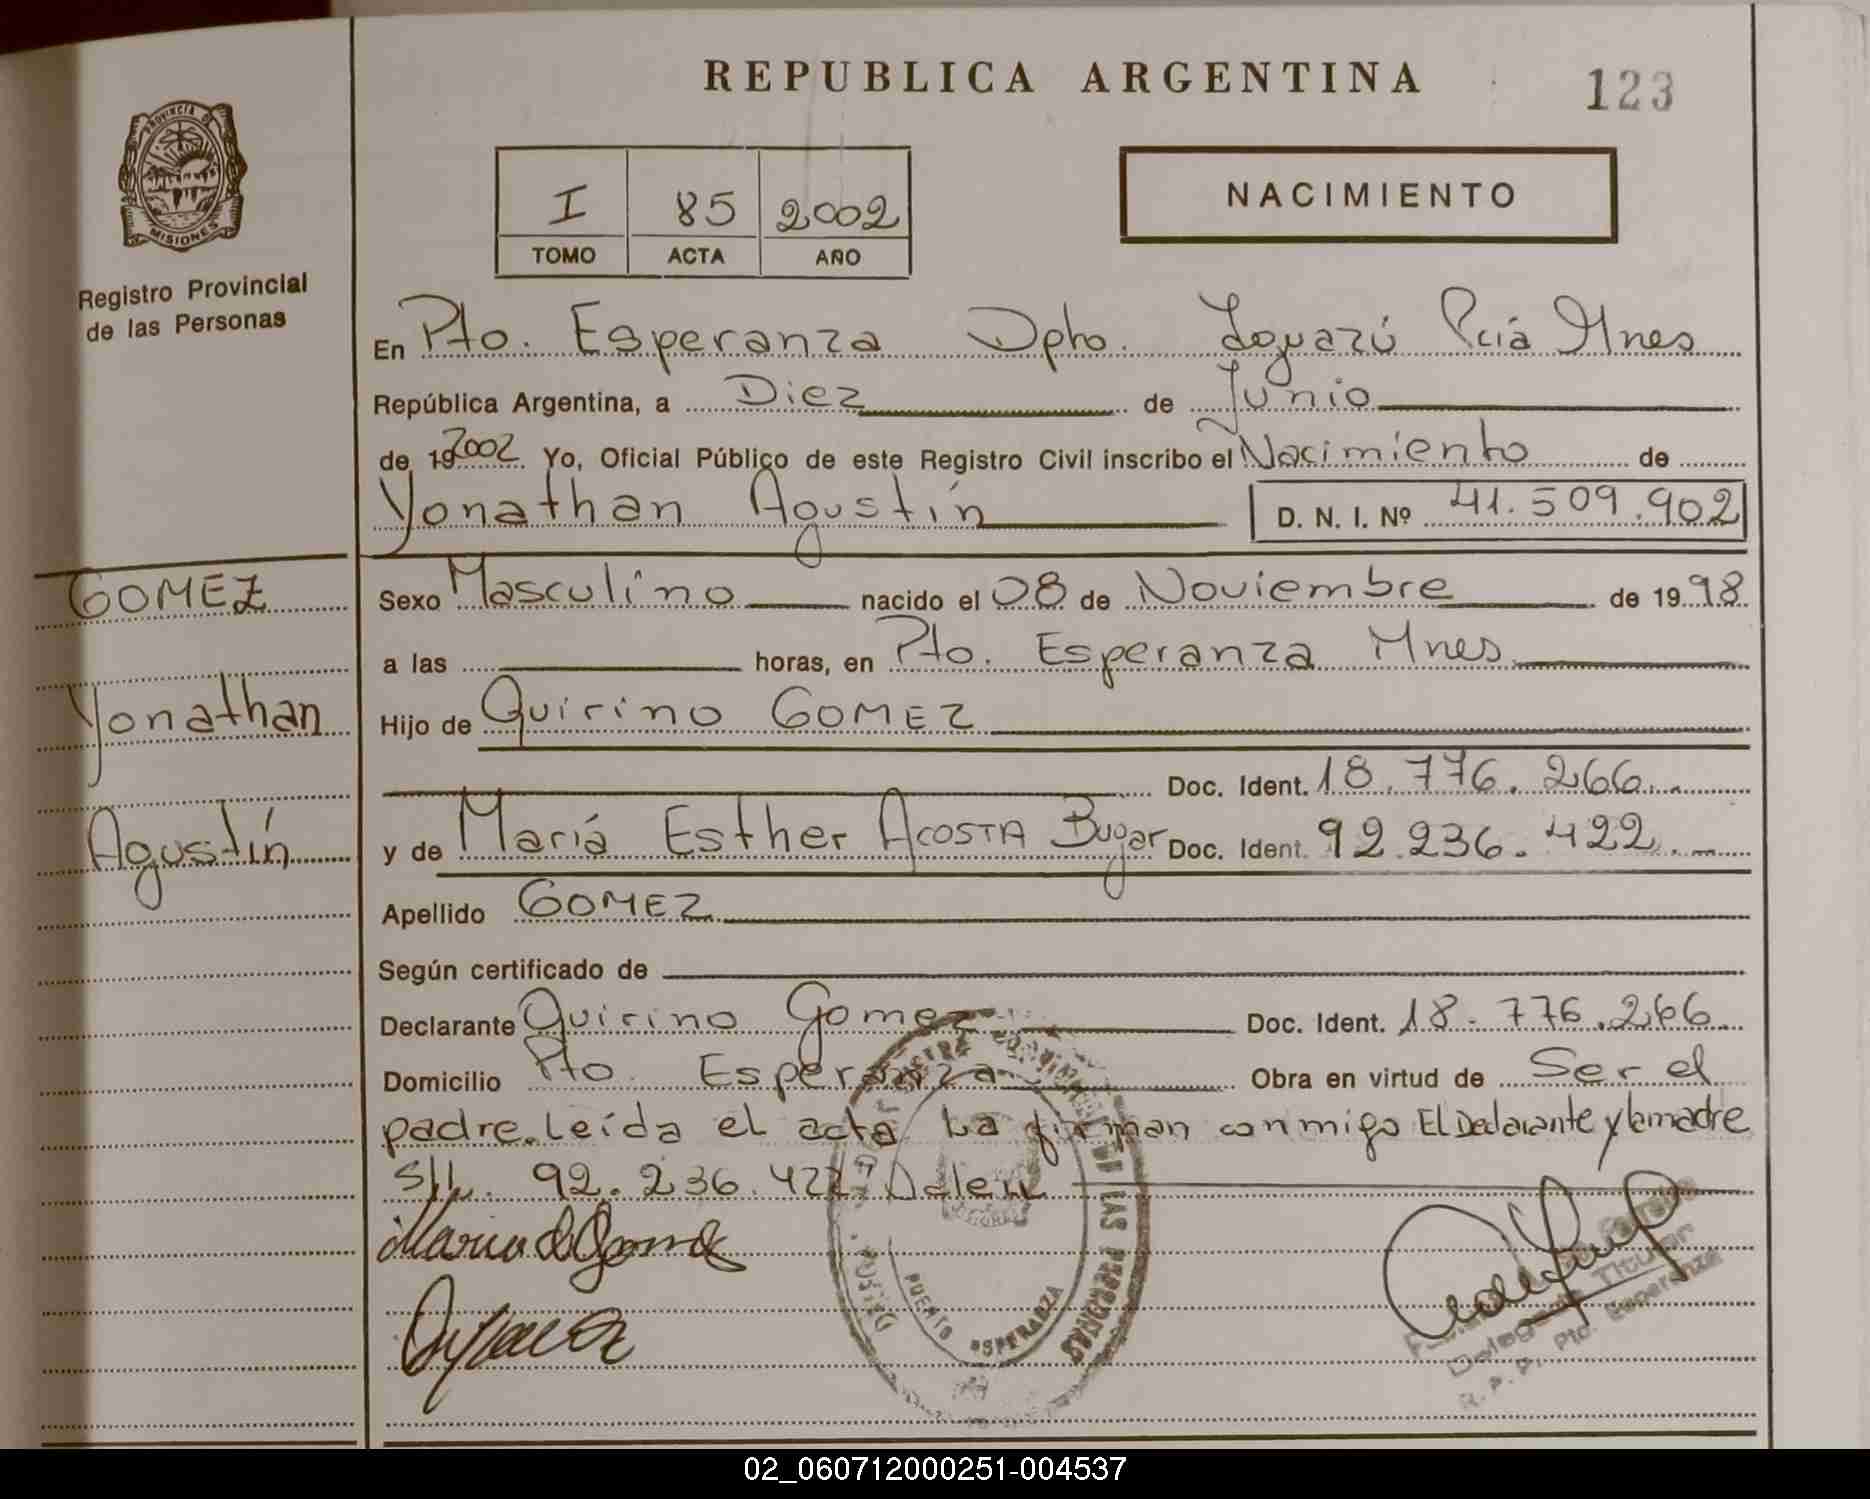 REPUBLICA ARGENTINA
123
PROVINCIA DE
MISIONES
Registro Provincial
de las Personas
I 85 2002
TOMO ACTA AÑO
NACIMIENTO
En Pto. Esperanza Dpto. Iguazú Pcia Mnes
República Argentina, a Diez de Junio
de 19 2002 Yo, Oficial Público de este Registro Civil inscribo el Nacimiento de
Yonathan Agustín D. N. I. Nº 41.509.902
GOMEZ
Yonathan
Agustín
Sexo Masculino nacido el 08 de Noviembre de 1998
a las horas, en Pto. Esperanza Mnes
Hijo de Quirino GOMEZ
Doc. Ident. 18.776.266
y de María Esther ACOSTA Bugar Doc. Ident. 92.236.422
Apellido GOMEZ
Según certificado de
Declarante Quirino Gomez Doc. Ident. 18.776.266
Domicilio Pto Esperanza Obra en virtud de Ser el
padre. Leída el acta La firman conmigo El Declarante y la madre
92.236.422
PUERTO ESPERANZA
DE LAS PERSONAS
Titular
R. P. P. Pto. Esperanza
02_060712000251-004537